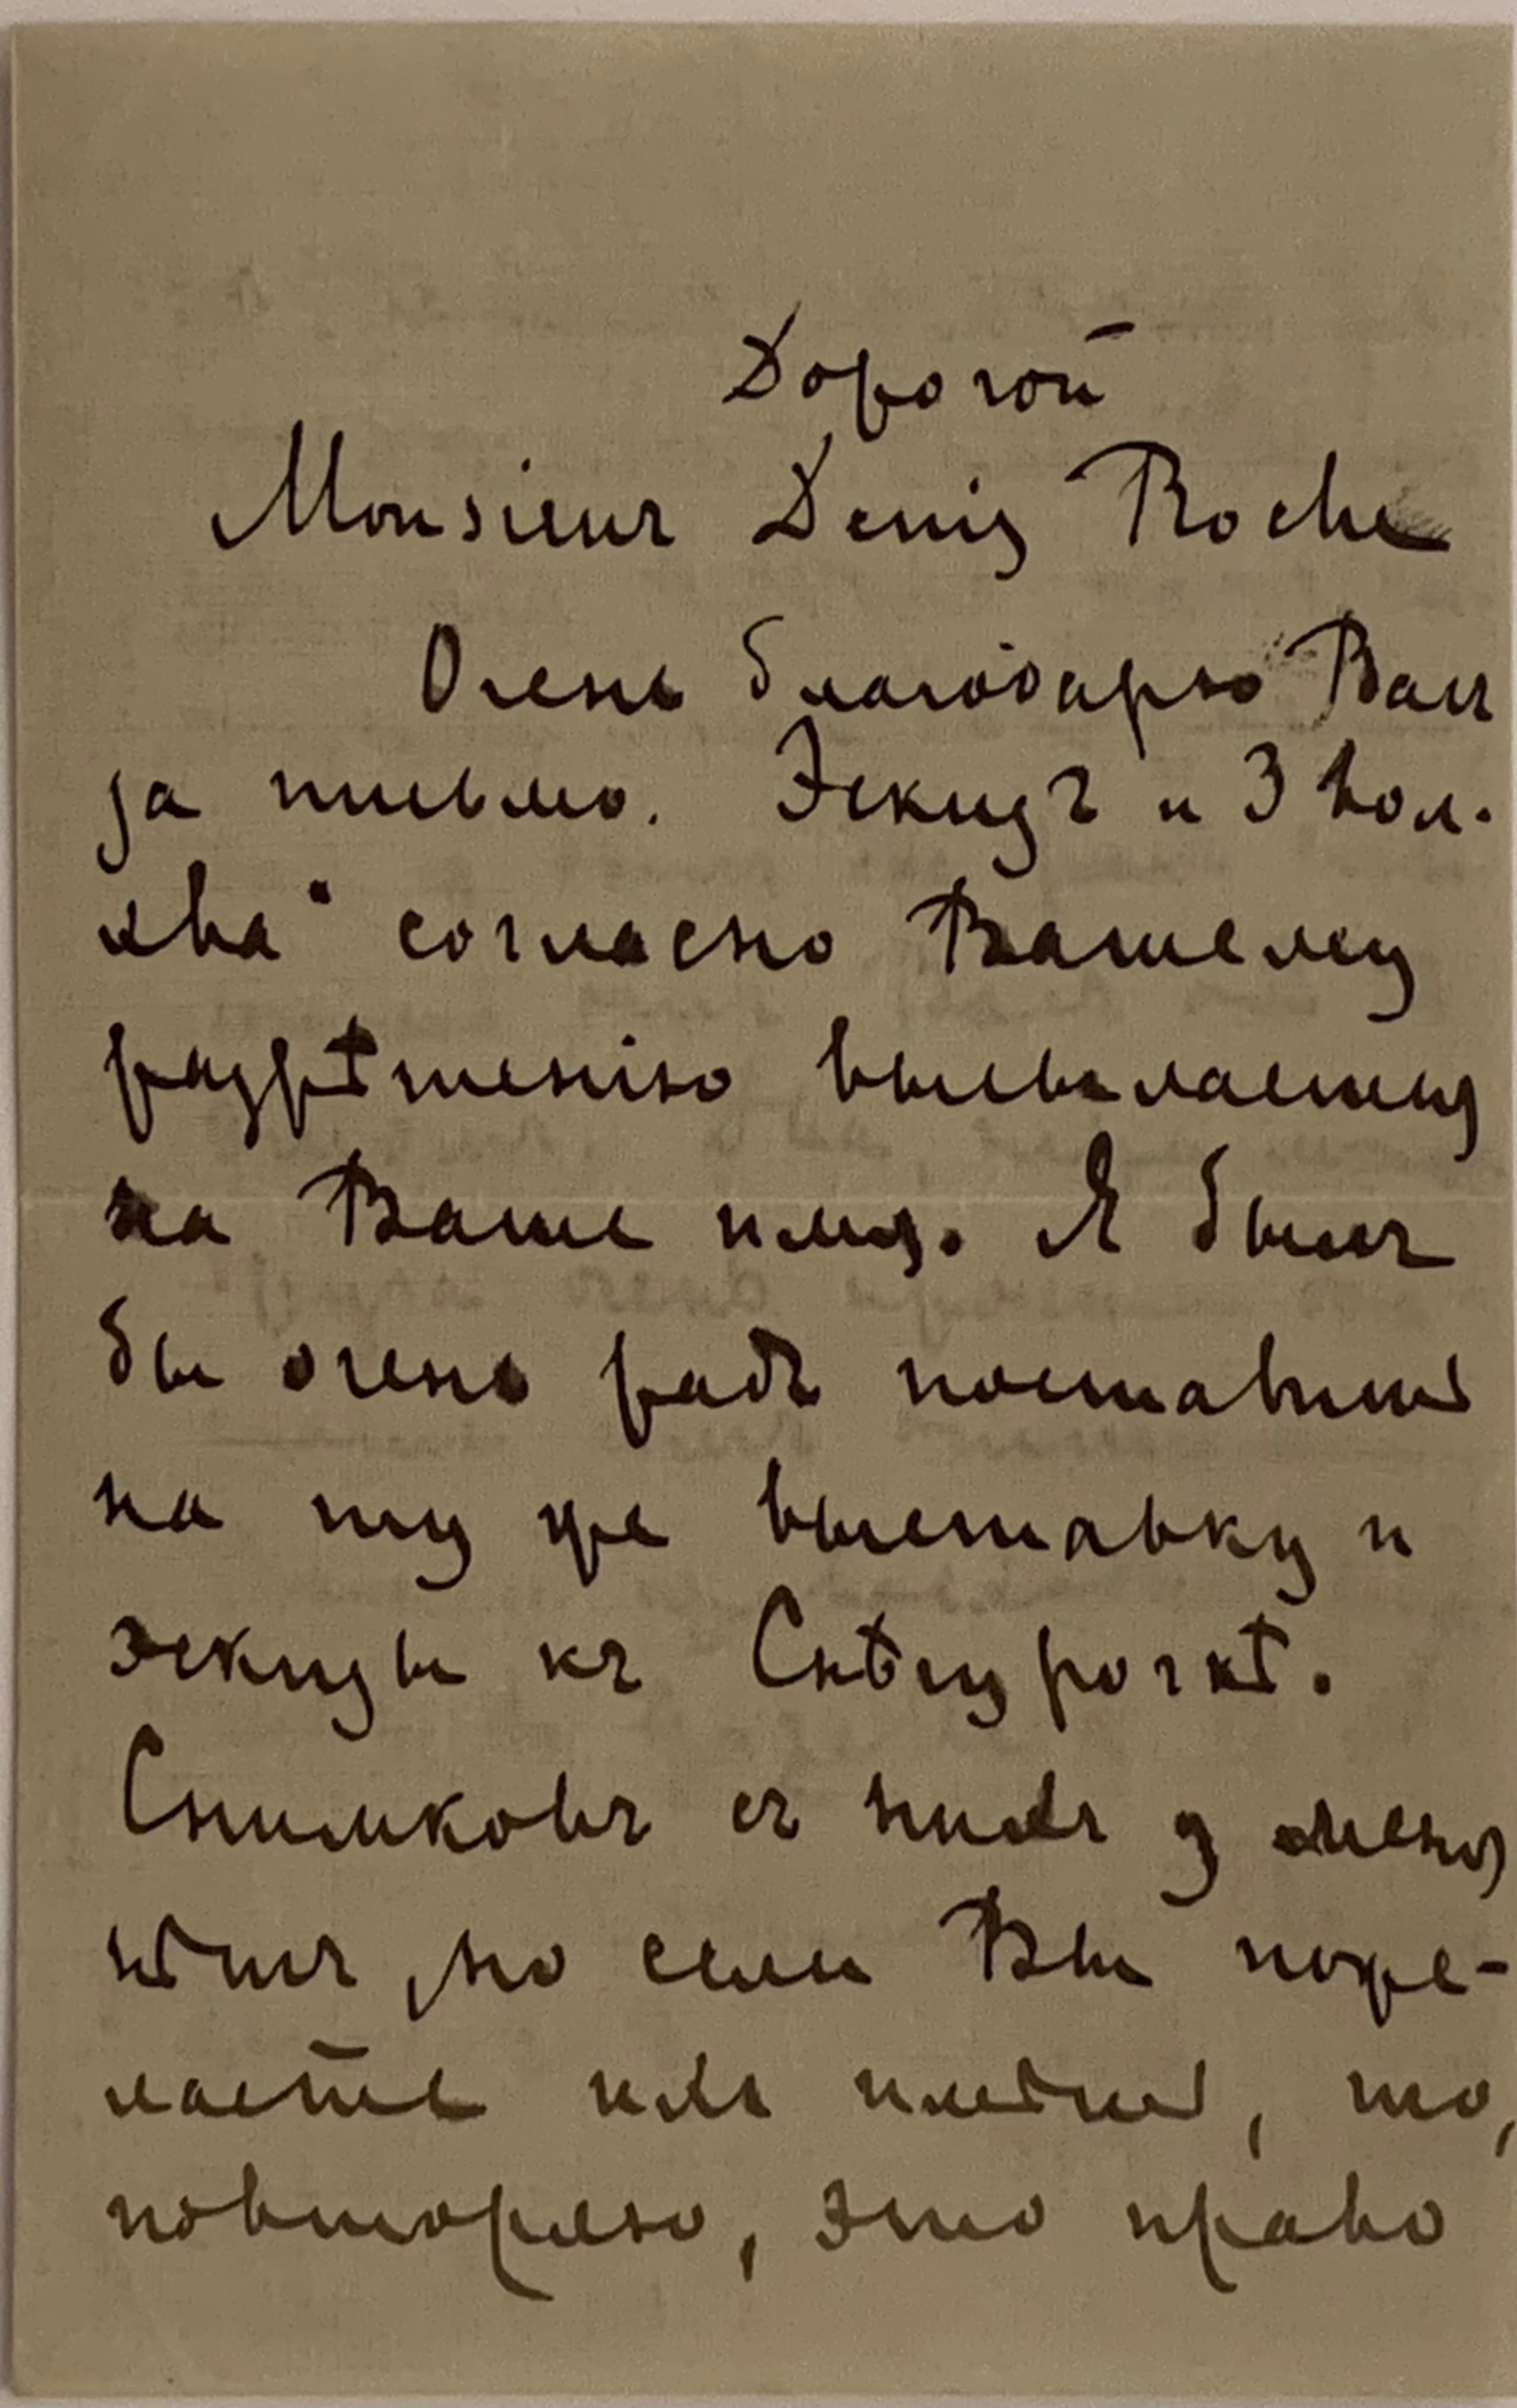 Дорогой
Monsieur Denis Roche
Очень благодарю Васъ
за письмо. Эскизъ „3 вол-
хва“ согласно Вашему
разрѣшенію высылается
на Ваше имя. Я былъ
бы очень радъ поставить
на ту же выставку и
эскизы къ Снѣгурочкѣ.
Снимковъ съ нихъ у меня
нѣтъ, но если Вы поже-
лаете ихъ имѣть, то,
повторяю, это право